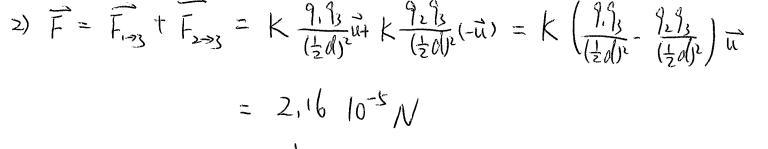 2) \vec{F} = \vec{F_{1→3}} + \vec{F_{2→3}} = K \frac{q_1 q_3}{(\frac{1}{2}d)^2} \vec{u} + K \frac{q_2 q_3}{(\frac{1}{2}d)^2} (-\vec{u}) = K \left( \frac{q_1 q_3}{(\frac{1}{2}d)^2} - \frac{q_2 q_3}{(\frac{1}{2}d)^2} \right) \vec{u}
= 2,16 10^{-5} N